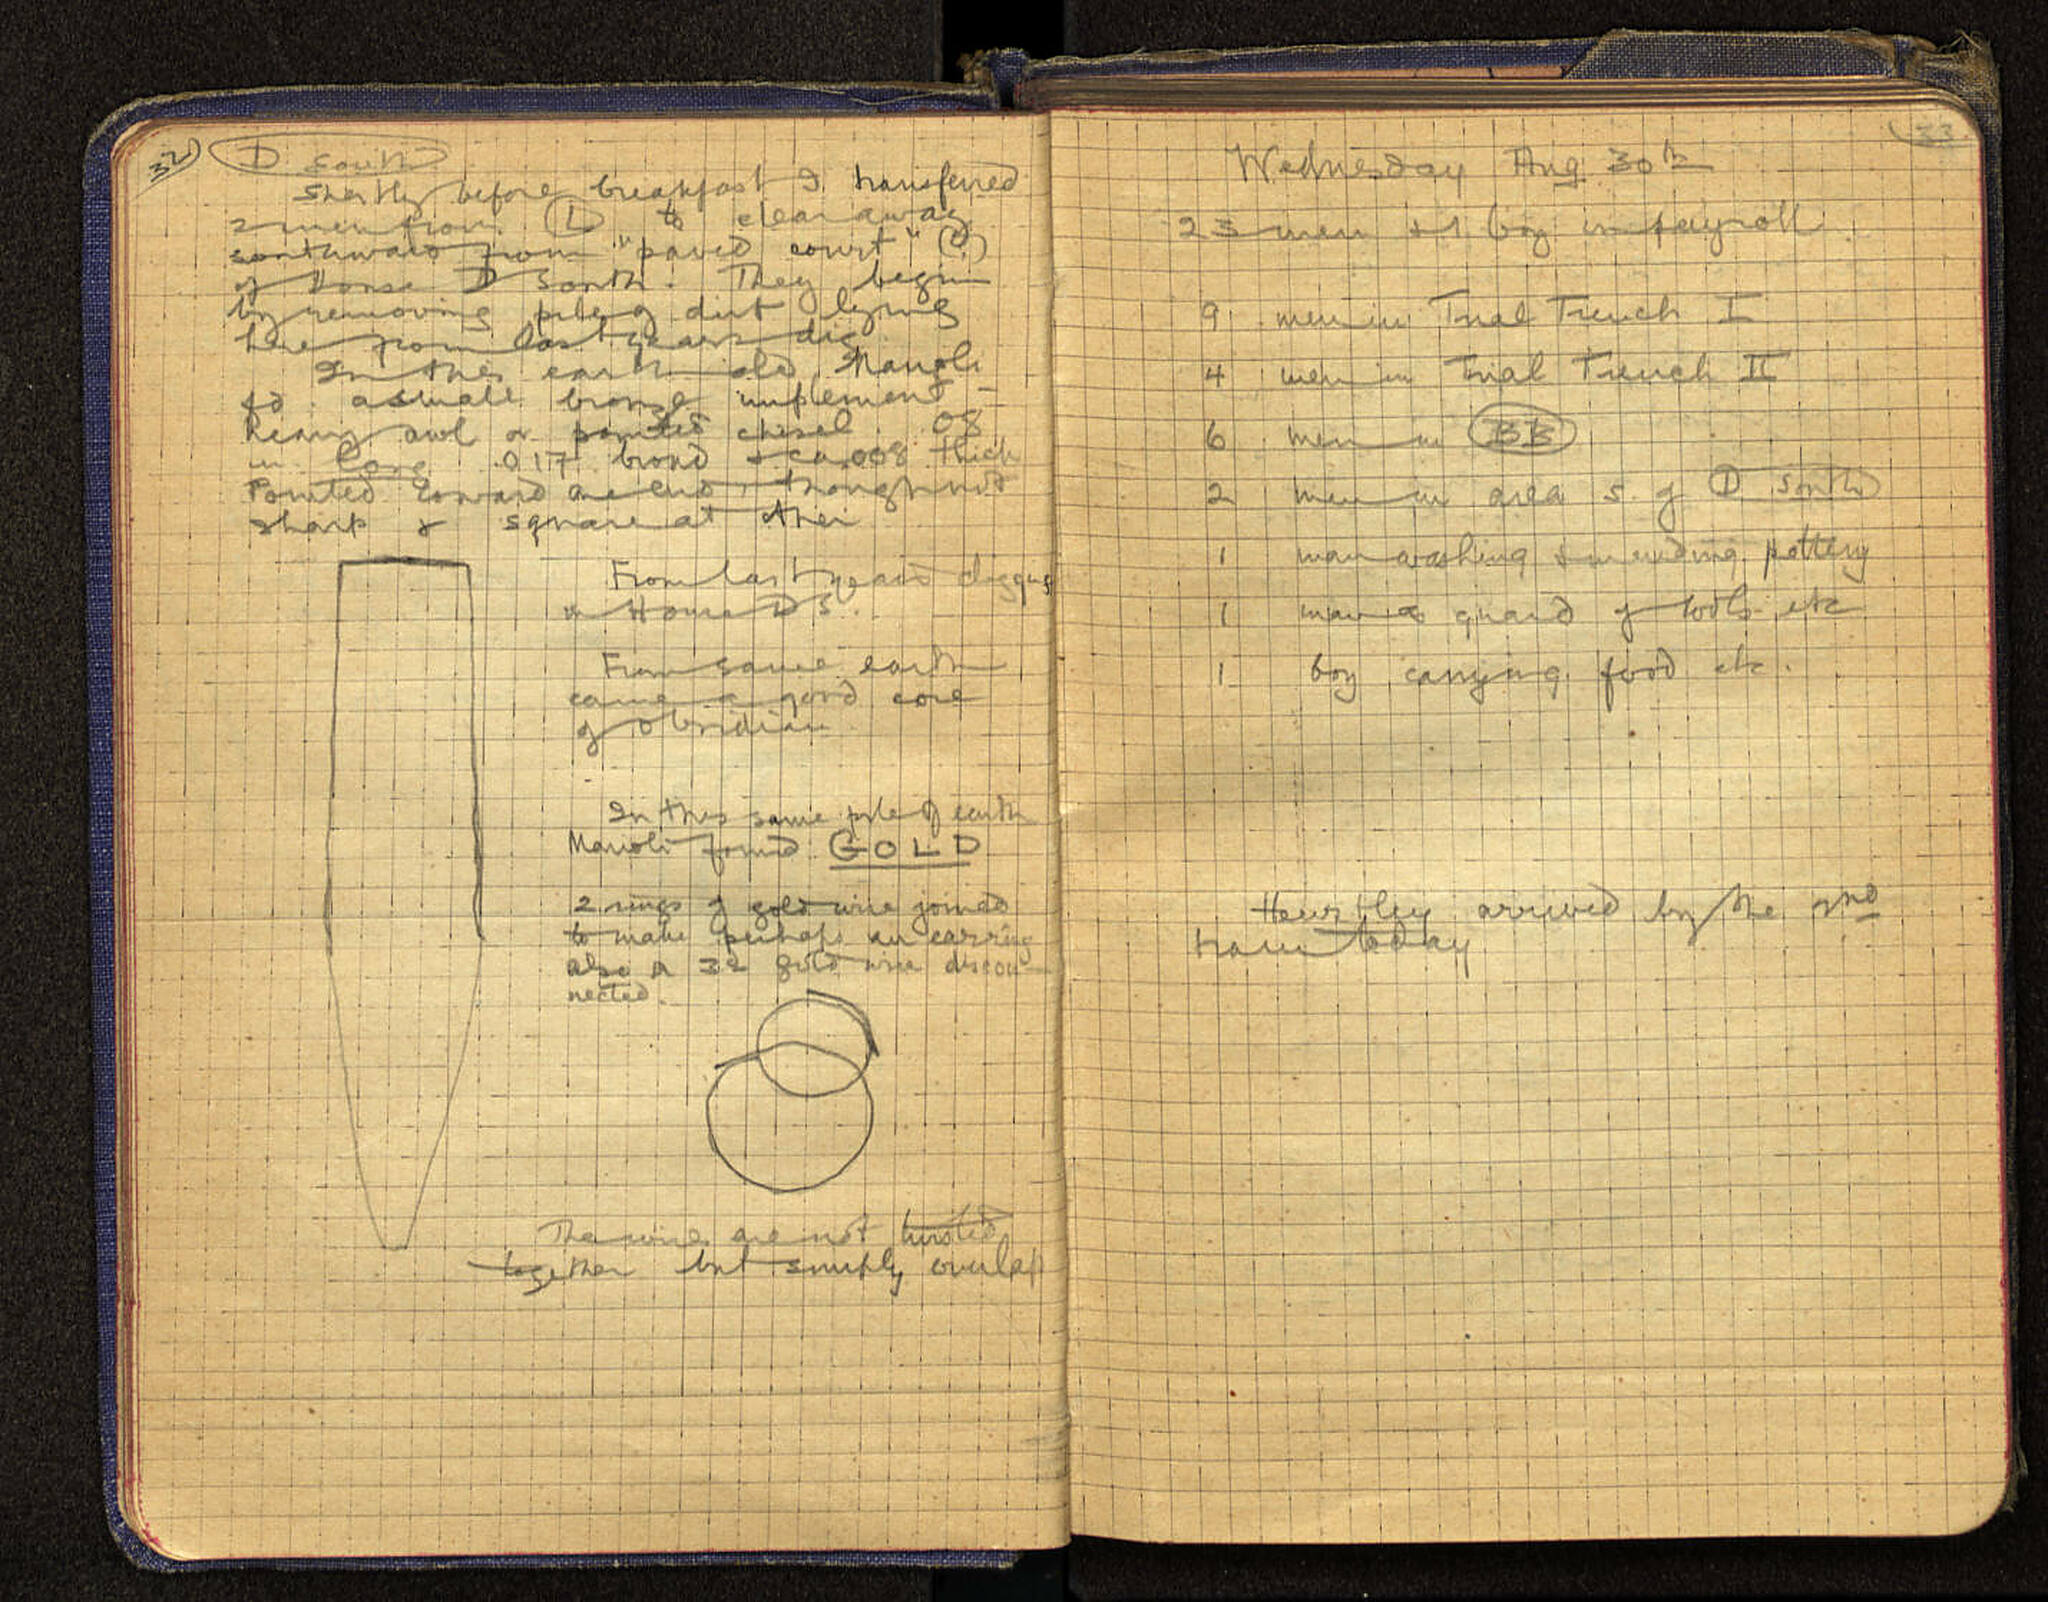 32
D South
Shortly before breakfast I transferred
2 men from L to clear away
southward from "paved court" (?)
of House D South. They begin
by removing pile of dirt lying
here from last years dig.
In this earth old Manoli
fd. a small bronze implement –
heavy awl or pointed chisel .08
m long .017 broad & ca .008 thick
Pointed toward one end, though not
sharp & square at other
From last years digging
in House D S.
From same earth
came a good core
of obsidian
In this same pile of earth
Manoli found GOLD
2 rings of gold wire joined
to make perhaps an earring
also a 3d gold wire discon-
nected.
The wires are not twisted
together but simply overlap
33
Wednesday Aug 30th
23 men & 1 boy on payroll
9 men in Trial Trench I
4 men in Trial Trench II
6 men in BB
2 men in area S. of D South
1 man washing & mending pottery
1 man guard of tools etc
1 boy carrying food etc.
Heurtley arrived by the
train today